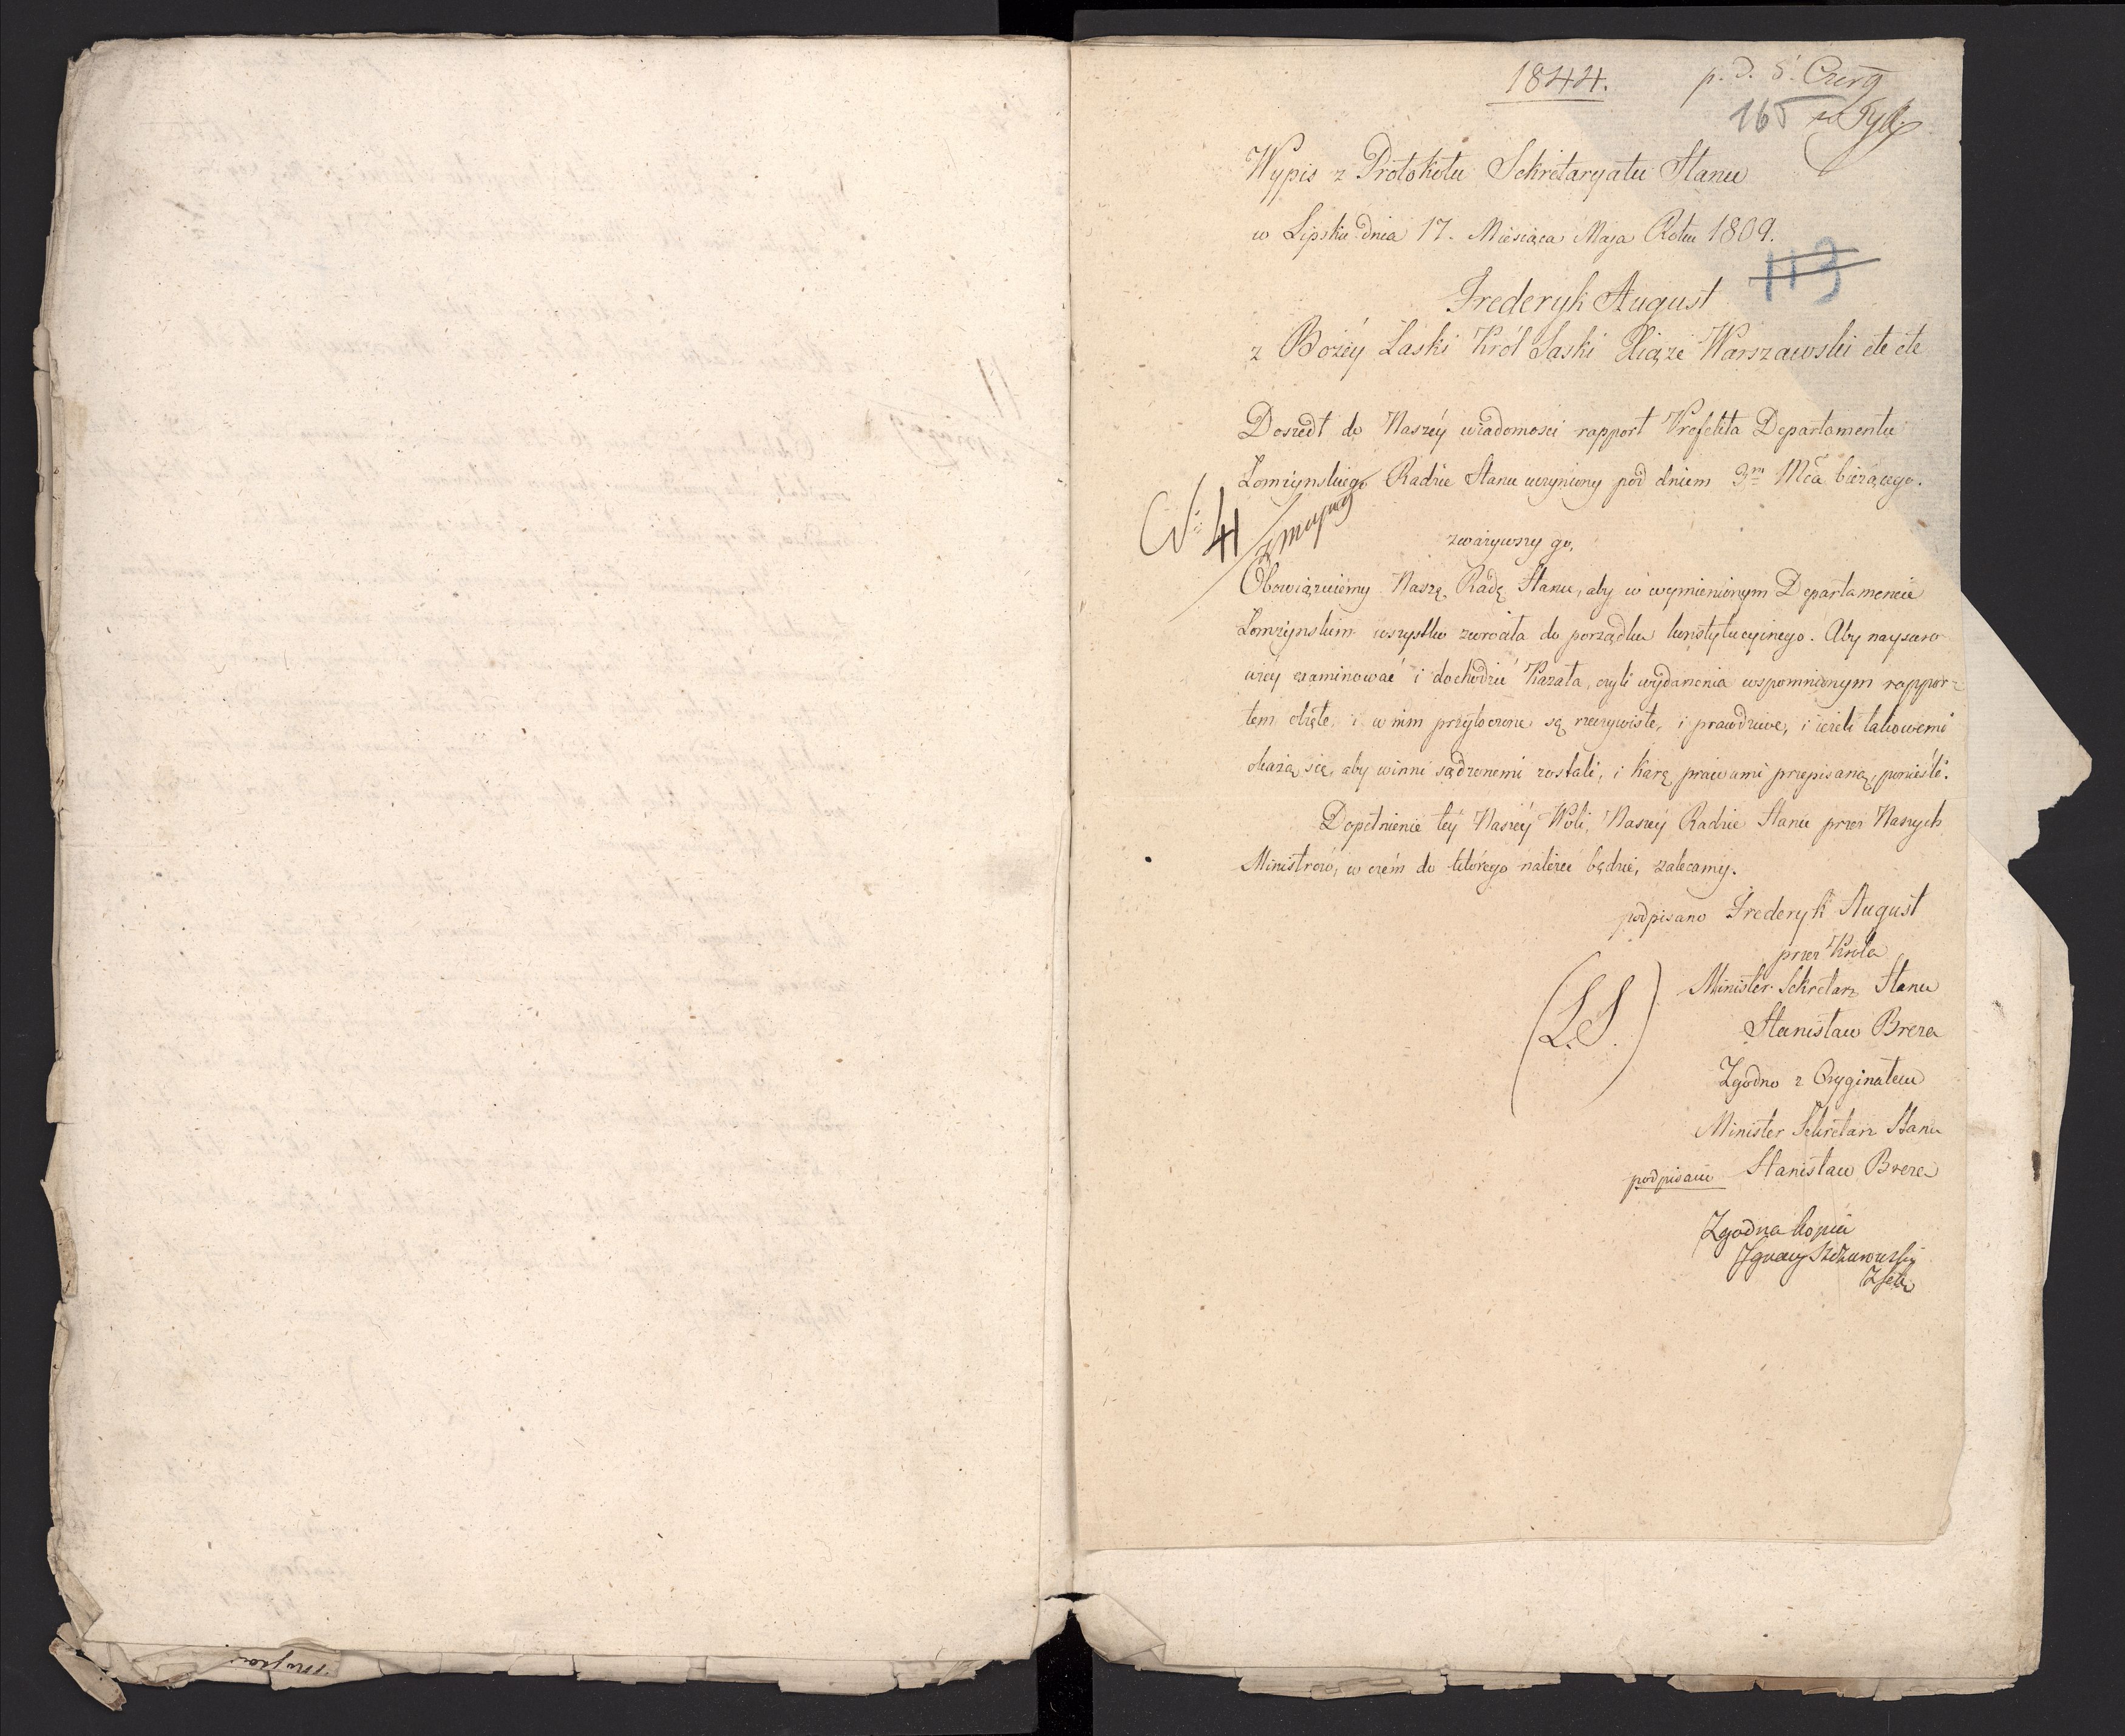 1844.
p. d. 5. Czerg
165
113
Wypis z Protokołu Sekretaryatu Stanu
w Lipsku dnia 17. Miesiąca Maja Roku 1809.
Frederyk August
z Bożéy Łaski Król Saski Xiąże Warszawski etc etc
Doszedł do Naszéy wiadomosci rapport Prefekta Departamentu
Łomżynskiego Radzie Stanu uczyniony pod dniem 3m Mca bieżącego.
Nº 41
z mappą
zważywszy go,
Obowiązuiemy Naszą Radę Stanu, aby w wymienionym Departamencie
Łomżynskim wszystko zwrociła do porządku konstytucyinego. Aby naysuro
wiéy examinować i dochodzić Kazała, czyli wydarzenia wspomnionym rappor=
tem obięte, i w nim przytoczone są rzeczywiste, i prawdziwe, i ieżeli takowemi
okażą się, aby winni sądzonemi zostali, i karę prawami przepisaną, ponieśli.
Dopełnienie téy Naszéy Woli, Naszéy Radzie Stanu przez Naszych
Ministrów, w czém do którego należeć będzie, zalecamy.
podpisano Frederyk August
przez Króla
Minister Sekretarz Stanu
(L.S.)
Stanisław Breza
Zgodno z Oryginałem
Minister Sekretarz Stanu
podpisano Stanisław Breza
Zgodna kopia
Ignacy